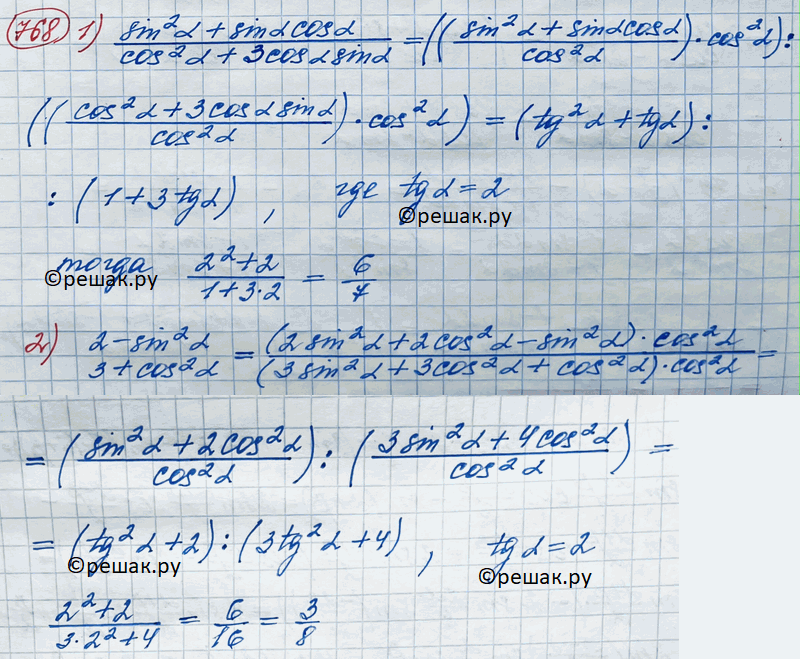 768. 1) (sin²α + sinα cosα)/(cos²α + 3cosα sinα) = (((sin²α + sinα cosα)/cos²α) · cos²α) :
(((cos²α + 3cosα sinα)/cos²α) · cos²α) = (tg²α + tgα) :
: (1 + 3tgα) , где tgα = 2
©решак.ру
тогда (2² + 2)/(1 + 3·2) = 6/7
©решак.ру
2) (2 − sin²α)/(3 + cos²α) = ((2sin²α + 2cos²α − sin²α) · cos²α)/((3sin²α + 3cos²α + cos²α) · cos²α) =
= ((sin²α + 2cos²α)/cos²α) : ((3sin²α + 4cos²α)/cos²α) =
= (tg²α + 2) : (3tg²α + 4) , tgα = 2
©решак.ру
©решак.ру
(2² + 2)/(3·2² + 4) = 6/16 = 3/8